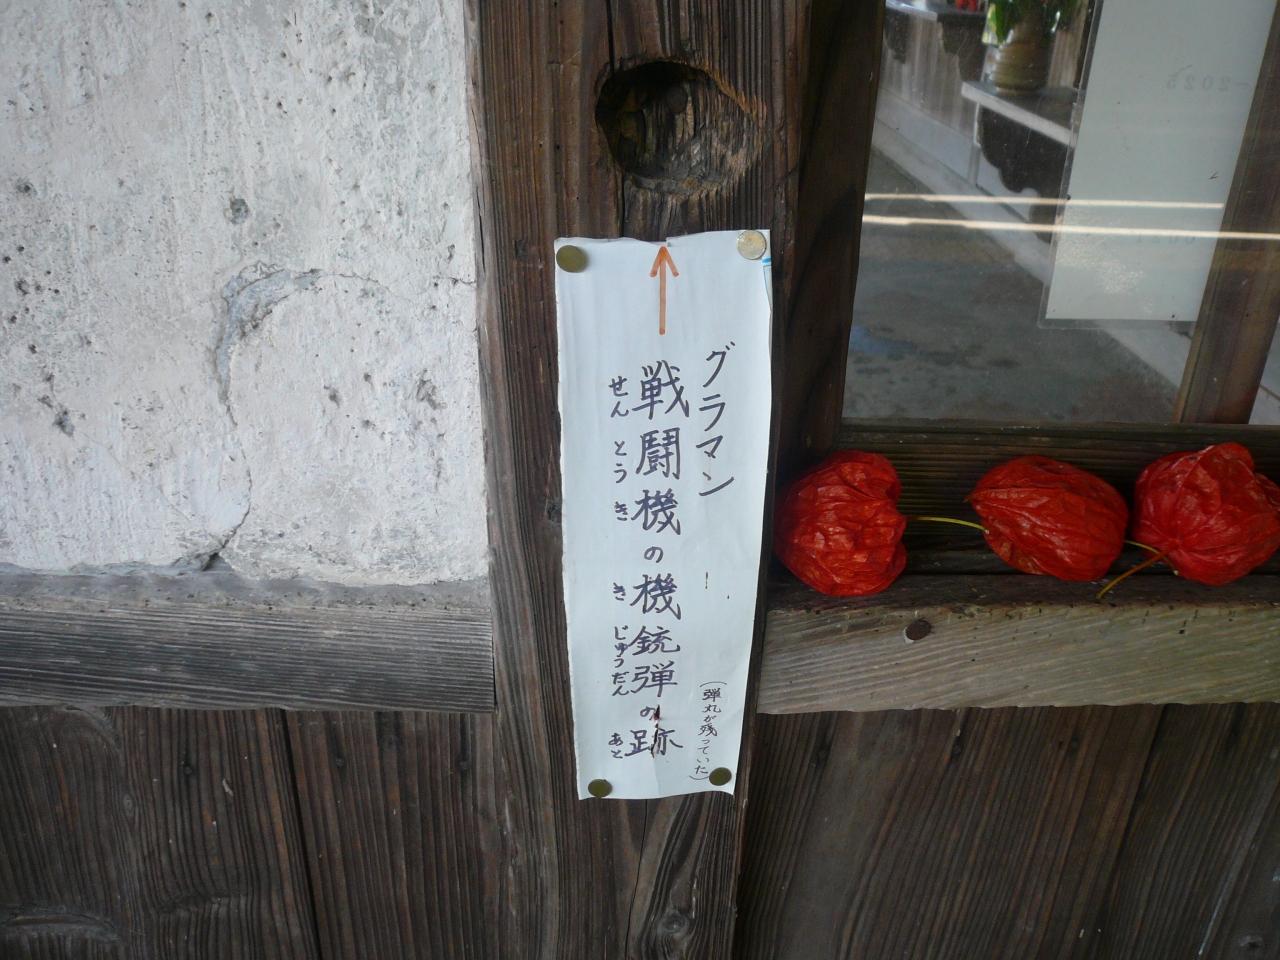 グラマン
戦闘機の機銃弾の跡
せんとうき きじゅうだん あと
(弾丸が残っていた)